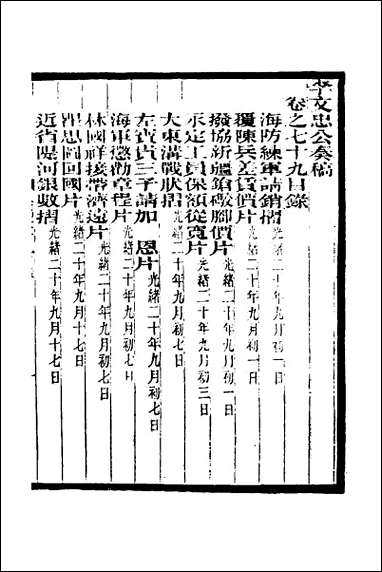 李文忠公奏稿
卷之七十九目錄
海防練軍請銷摺 光緒二十年九月初一日
覆陳兵差貨價片 光緒二十年九月初一日
撥協新疆鎗礮腳價片 光緒二十年九月初一日
永定工員保額從寬片 光緒二十年九月初三日
大東溝戰狀摺 光緒二十年九月初七日
左寶貴三子請加 恩片 光緒二十年九月初七日
海軍懲勸章程片 光緒二十年九月初七日
林國祥接帶濟遠片 光緒二十年九月初七日
思圖回國片 光緒二十年九月十七日
近省隄河銀數摺 光緒二十年九月十七日